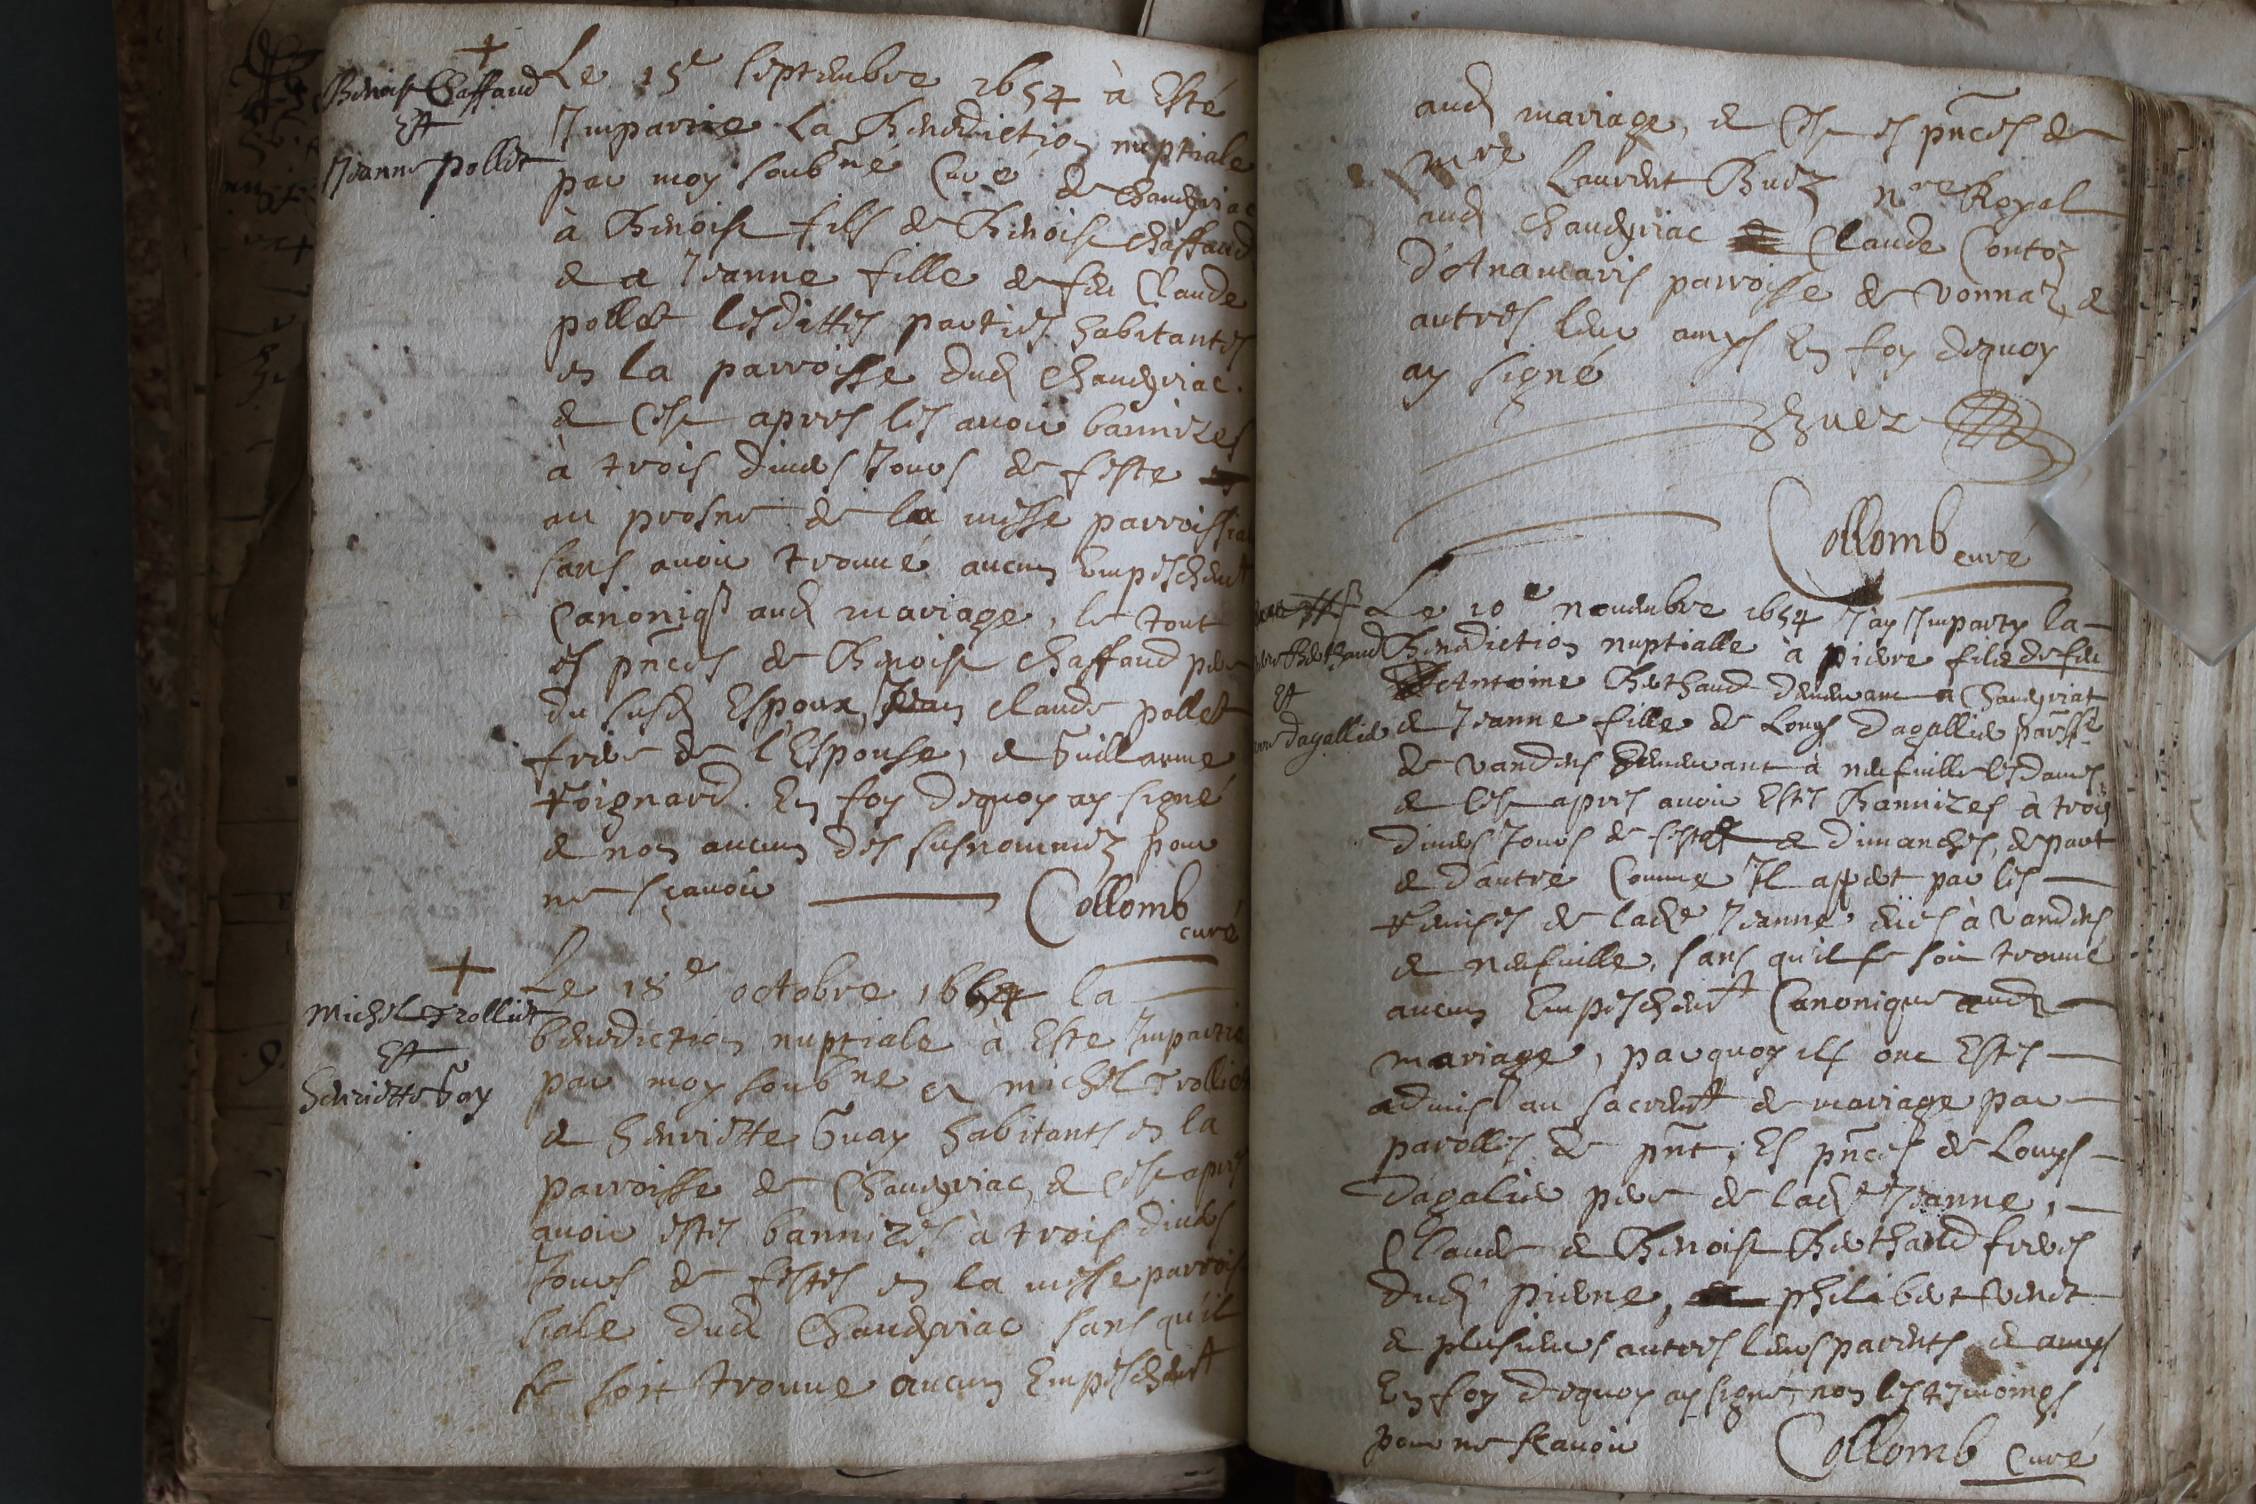 Benoist Chaffaud
Et
Jeanne pollet
Le 15e septembre 1654 à Esté
Impartie La Benediction nuptiale
par moy soubné Curé de chaveyriac
à Benoist fils de Benoist chaffaud
& a Jeanne fille de feu Claude
pollet lesdittes parties habitantes
en la parroisse dud chaveyriac.
& Cest apres les avoir bannizes
à trois divers Jours de feste
au prosne de la messe parroissial
sans avoir trouvé aucun Empeschemt
Canoniq aud mariage, le tout
es pnces de Benoist chaffaud pere
du susd Espoux, Jean claude pollet
frere de l'Espouse, & Guillaume
foignard. En foy dequoy ay signé
& non aucun des susnommez pour
ne sçavoir Collomb
curé
Michel Trolliet
Et
henriette Goy
Le 18e octobre 1654 la
benediction nuptiale à Este Impartie
par moy soubné a michel Trolliet
& henriette Guay habitants en la
parroisse de Chaveyriac, & Cest apres
avoir estes bannizes à trois divers
Jours de festes en la messe parrois
siale dud Chaveyriac sans qu'il
se soit trouve aucun Empeschemt
aud mariage, & Cest es pnces de
Mre Laurent Buez Nre Royal
aud chaveyriac Claude Conton
d'Anamaris parroisse de vonnaz, &
autres leur amys En foy dequoy
ay signé
Buez
Collomb
curé
Berthaud
Et
dagallier
Le 10e novembre 1654 J'ay Imparty la
Benediction nuptialle à pierre filz de feu
Antoine Berthaud demeurant a Chaveyriat
& Jeanne fille de Louys dagallier parsse
de vandens demeurant à neufville les dames
& Cest apres avoir Estes Bannizes à trois
divers Jours de festes & dimanches, de part
& d'autre Comme Il appert par les
remises de lade Jeanne à vandens
& neufville, sans qu'il se soit trouvé
aucun Empeschemt Canonique aud
mariage, parquoy ils ont Estes
admis au sacremt de mariage par
parolles de pnt, Es pnces de Louys
dagalier pere de lade Jeanne,
Claude & Benoist Berthaud freres
dud pierre, philibert
& plusieurs autres leurs parents & amys
En foy dequoy ay signé, non les tesmoings
pour ne scavoir Collomb Curé